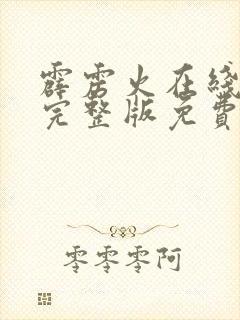 霹雳火在线
完整版免費
零零零阿